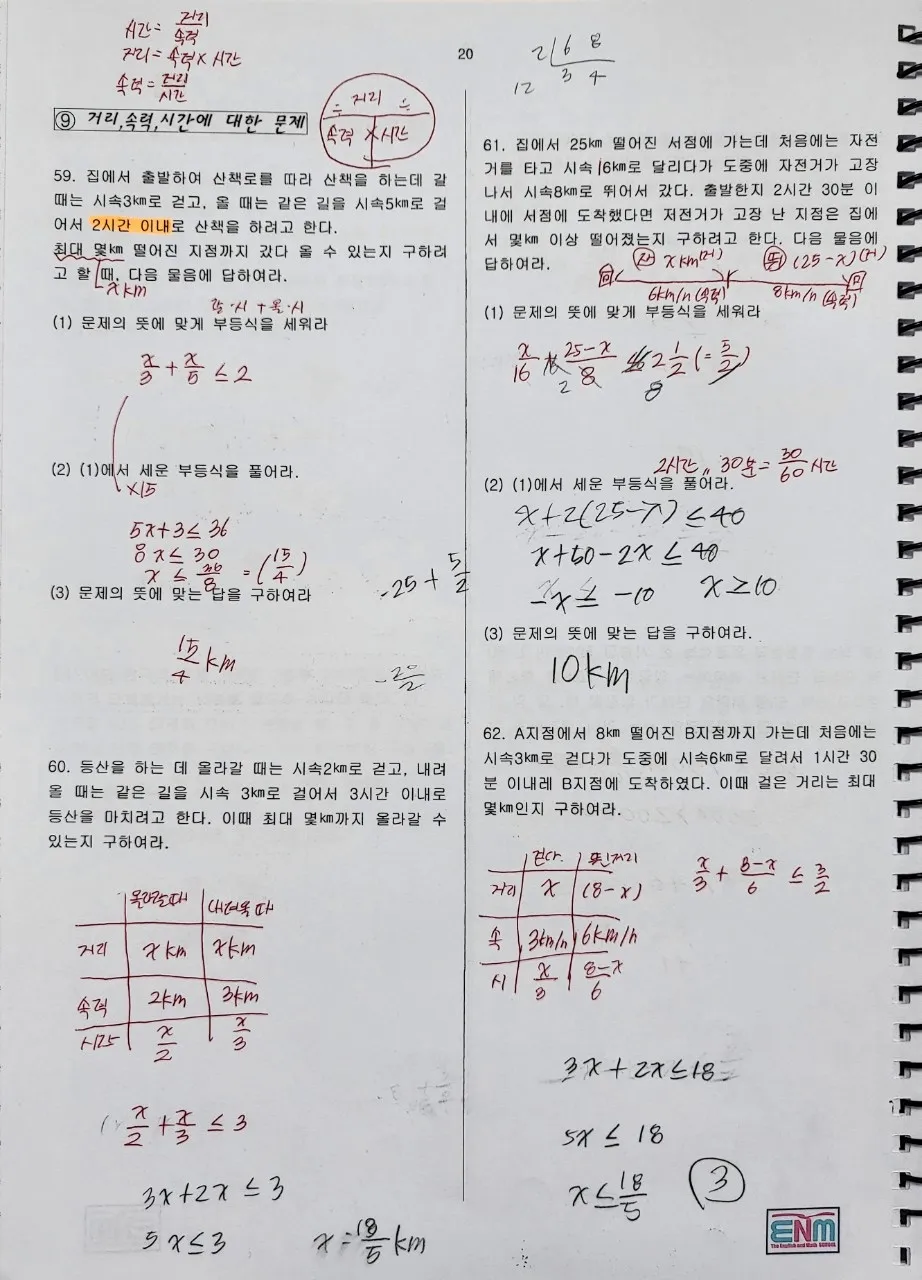 시간 = 거리/속력
거리 = 속력 × 시간
속력 = 거리/시간
20
⑨ 거리,속력,시간에 대한 문제
거리
속력 × 시간
59. 집에서 출발하여 산책로를 따라 산책을 하는데 갈
때는 시속3㎞로 걷고, 올 때는 같은 길을 시속5㎞로 걸
어서 2시간 이내로 산책을 하려고 한다.
최대 몇㎞ 떨어진 지점까지 갔다 올 수 있는지 구하려
고 할 때, 다음 물음에 답하여라.
x km
갈·시 + 올·시
(1) 문제의 뜻에 맞게 부등식을 세워라
x/3 + x/5 ≤ 2
(2) (1)에서 세운 부등식을 풀어라.
×15
5x+3≤36
8x ≤ 30
x ≤ 30/8 = (15/4)
(3) 문제의 뜻에 맞는 답을 구하여라
15/4 km
-25 + 5/2
60. 등산을 하는 데 올라갈 때는 시속2㎞로 걷고, 내려
올 때는 같은 길을 시속 3㎞로 걸어서 3시간 이내로
등산을 마치려고 한다. 이때 최대 몇㎞까지 올라갈 수
있는지 구하여라.
올라갈때 내려올 때
거리 x km x km
속력 2km 3km
시간 x/2 x/3
x/2 + x/3 ≤ 3
3x+2x ≤ 3
5x≤3 x = 18/5 km
2 6 8
3 4
12
61. 집에서 25㎞ 떨어진 서점에 가는데 처음에는 자전
거를 타고 시속16㎞로 달리다가 도중에 자전거가 고장
나서 시속8㎞로 뛰어서 갔다. 출발한지 2시간 30분 이
내에 서점에 도착했다면 저전거가 고장 난 지점은 집에
서 몇㎞ 이상 떨어졌는지 구하려고 한다. 다음 물음에
답하여라.
자 x km(거) 뛰 (25-x)(거)
6km/h (속력) 8km/h (속력)
(1) 문제의 뜻에 맞게 부등식을 세워라
x/16 + 25-x/8 ≤ 2 1/2 (= 5/2)
2 8
2시간, 30분 = 30/60 시간
(2) (1)에서 세운 부등식을 풀어라.
x+2(25-x) ≤ 40
x+50-2x ≤ 40
-x ≤ -10 x ≥ 10
(3) 문제의 뜻에 맞는 답을 구하여라.
10km
62. A지점에서 8㎞ 떨어진 B지점까지 가는데 처음에는
시속3㎞로 걷다가 도중에 시속6㎞로 달려서 1시간 30
분 이내레 B지점에 도착하였다. 이때 걸은 거리는 최대
몇㎞인지 구하여라.
걷다. 뛴거리
거리 x (8-x)
속 3km/h 6km/h
시 x/3 8-x/6
x/3 + 8-x/6 ≤ 3/2
3x + 2x ≤ 18
5x ≤ 18
x ≤ 18/5 ③
ENM
The English and Math SCHOOL